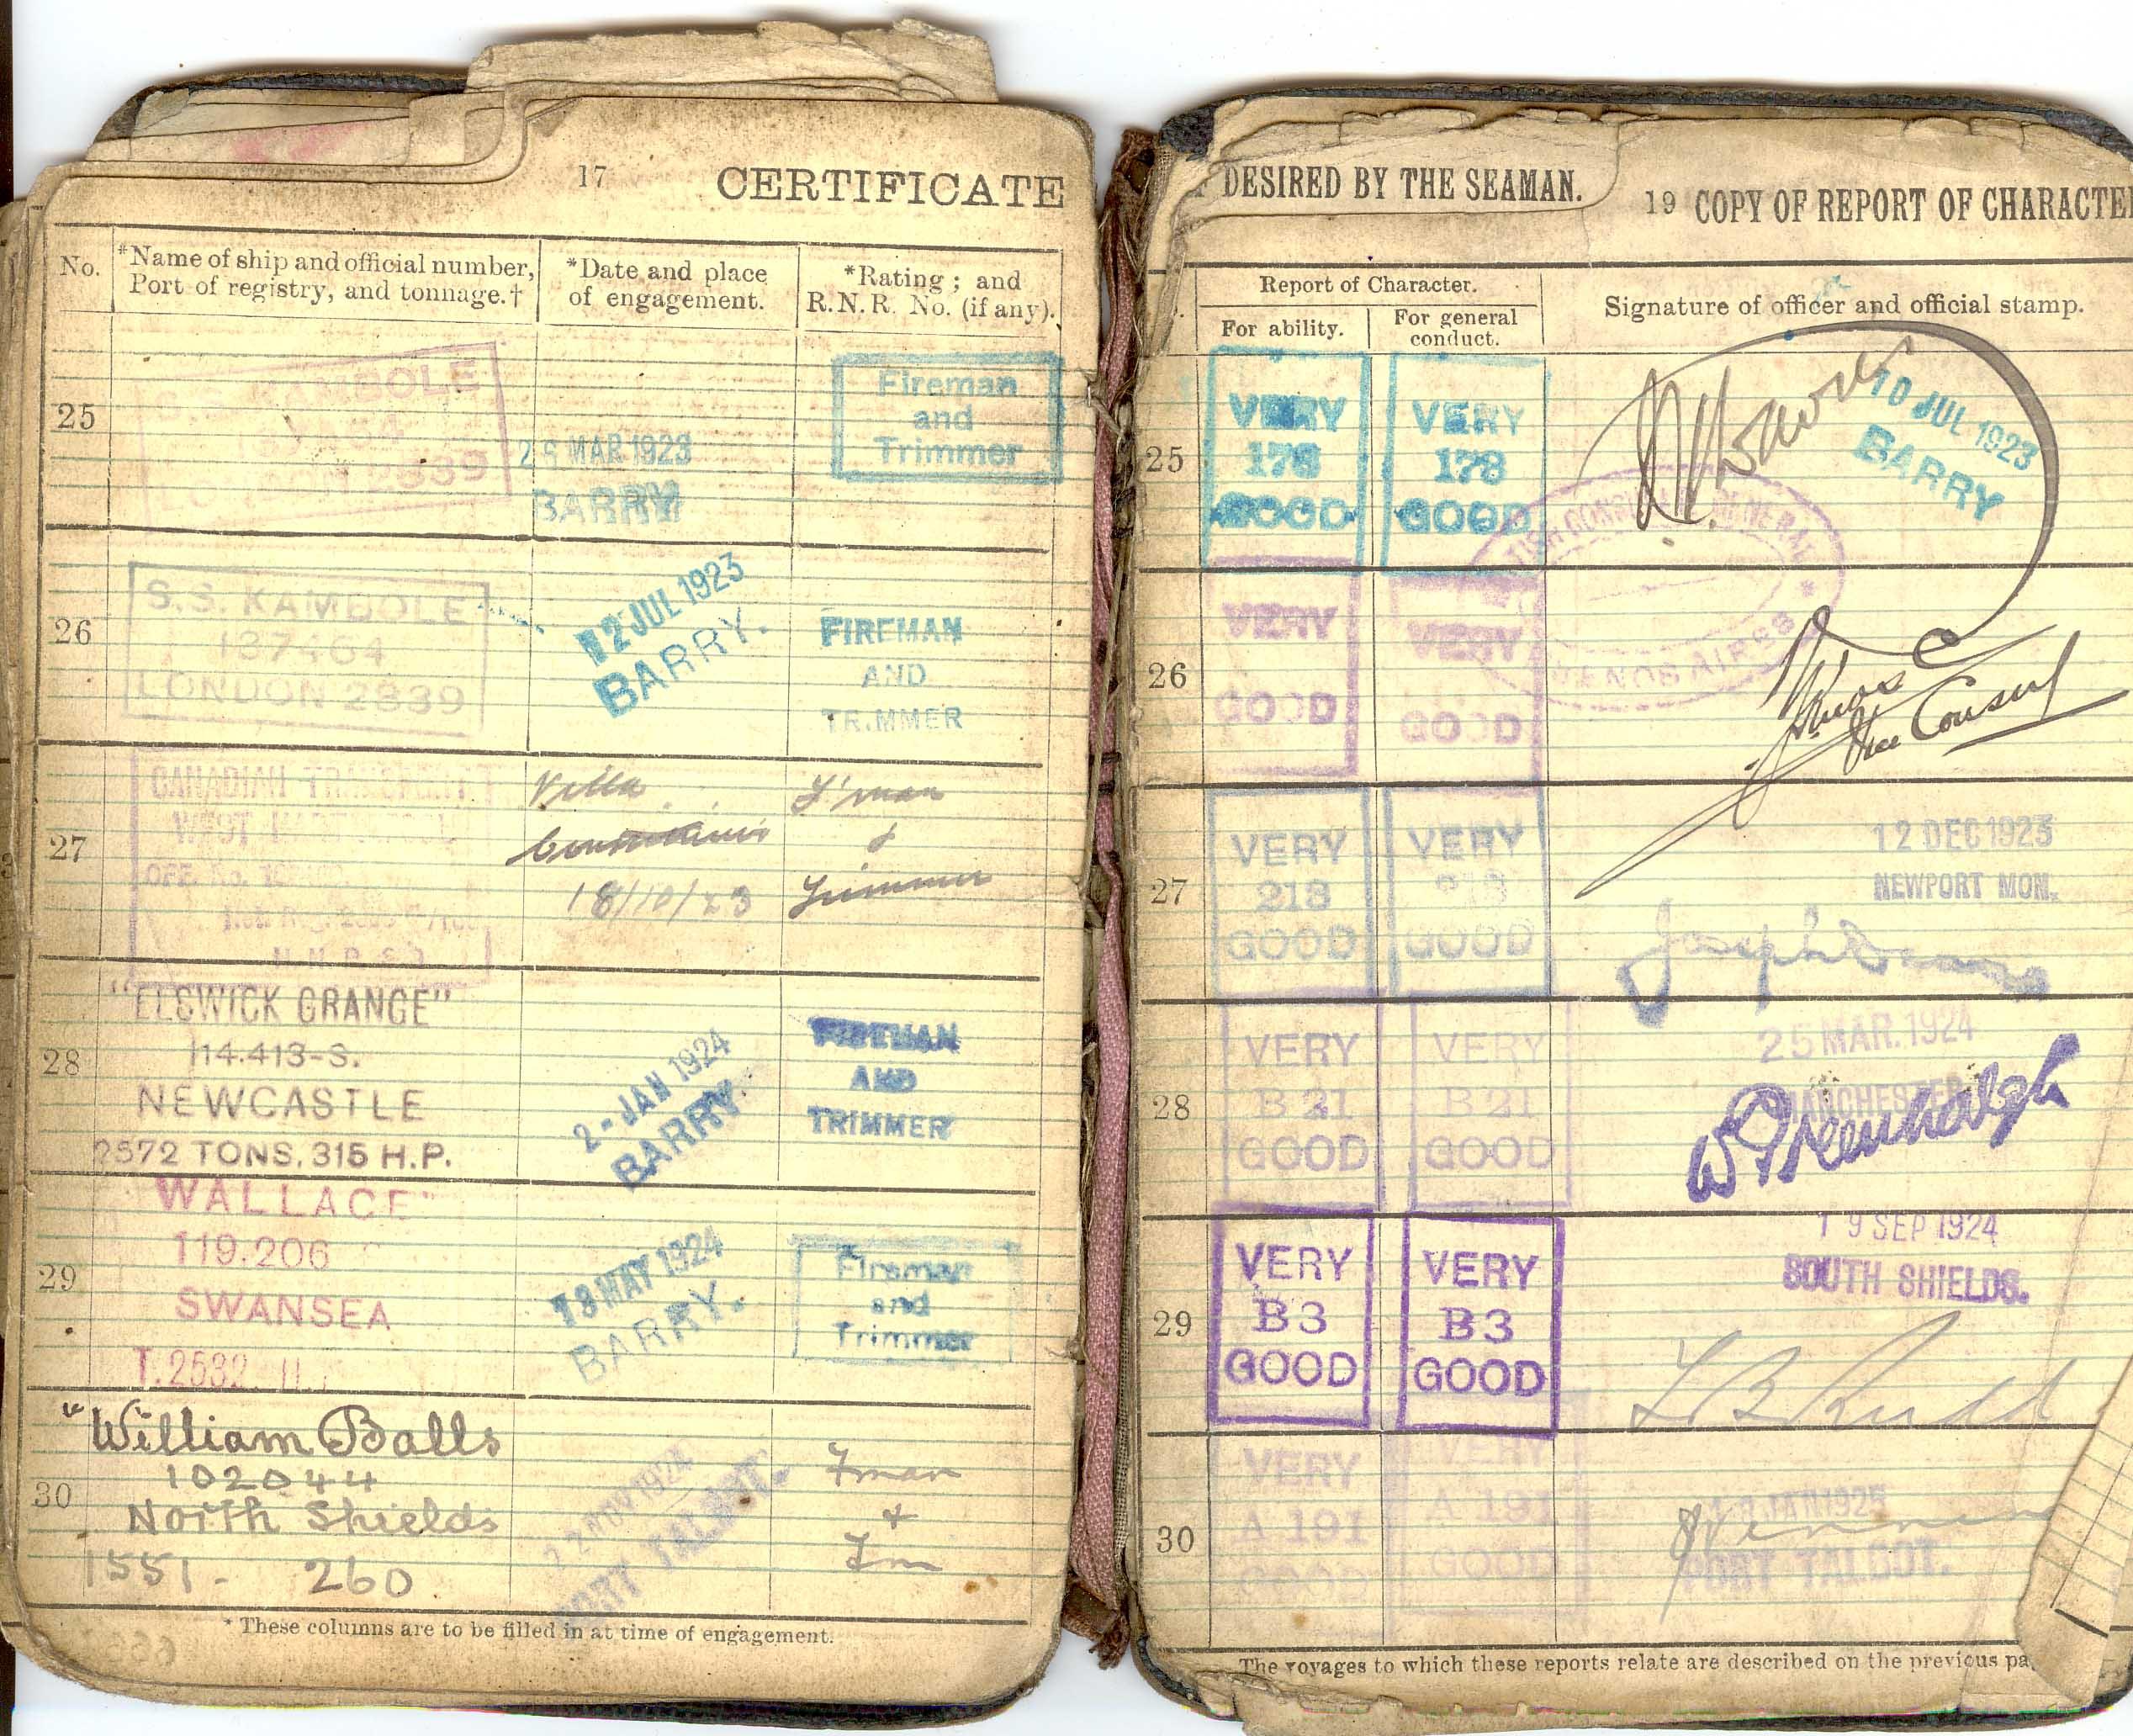 17 CERTIFICATE
No.
*Name of ship and official number,
Port of registry, and tonnage.†
*Date and place
of engagement.
*Rating; and
R.N.R. No. (if any).
25
LONDON 2839
MAR 1923
BARRY
Fireman
and
Trimmer
26
S.S. KAMBOLE
137464
LONDON 2839
12 JUL 1923
BARRY.
FIREMAN
AND
TRIMMER
27
CANADIAN TRANSPORT
WEST
OFF. No.
Villa
Constitucion
18/10/23
F'man
&
Trimmer
28
"ELSWICK GRANGE"
114.413-S.
NEWCASTLE
2572 TONS. 315 H.P.
2-JAN 1924
BARRY.
FIREMAN
AND
TRIMMER
29
WALLACE"
119.206
SWANSEA
T.2532
13 MAY 1924
BARRY.
Fireman
and
Trimmer
30
"William Balls
102044
North Shields
1551. 260
NOV 1924
PORT TALBOT.
Fman
+
Tm
* These columns are to be filled in at time of engagement.
DESIRED BY THE SEAMAN.
19 COPY OF REPORT OF CHARACTE
Report of Character.
For ability.
For general
conduct.
Signature of officer and official stamp.
25
VERY
178
GOOD
VERY
178
GOOD
10 JUL 1923
BARRY
26
VERY
GOOD
VERY
GOOD
BUENOS AIRES
Vice Consul
27
VERY
213
GOOD
VERY
213
GOOD
12 DEC 1923
NEWPORT MON.
Joseph
28
VERY
B 21
GOOD
VERY
B 21
GOOD
25 MAR. 1924
MANCHESTER
W Greenhalgh
29
VERY
B3
GOOD
VERY
B3
GOOD
19 SEP 1924
SOUTH SHIELDS.
Rudd
30
VERY
A 191
GOOD
VERY
A 191
GOOD
JAN 1925
PORT TALBOT.
The voyages to which these reports relate are described on the previous pa